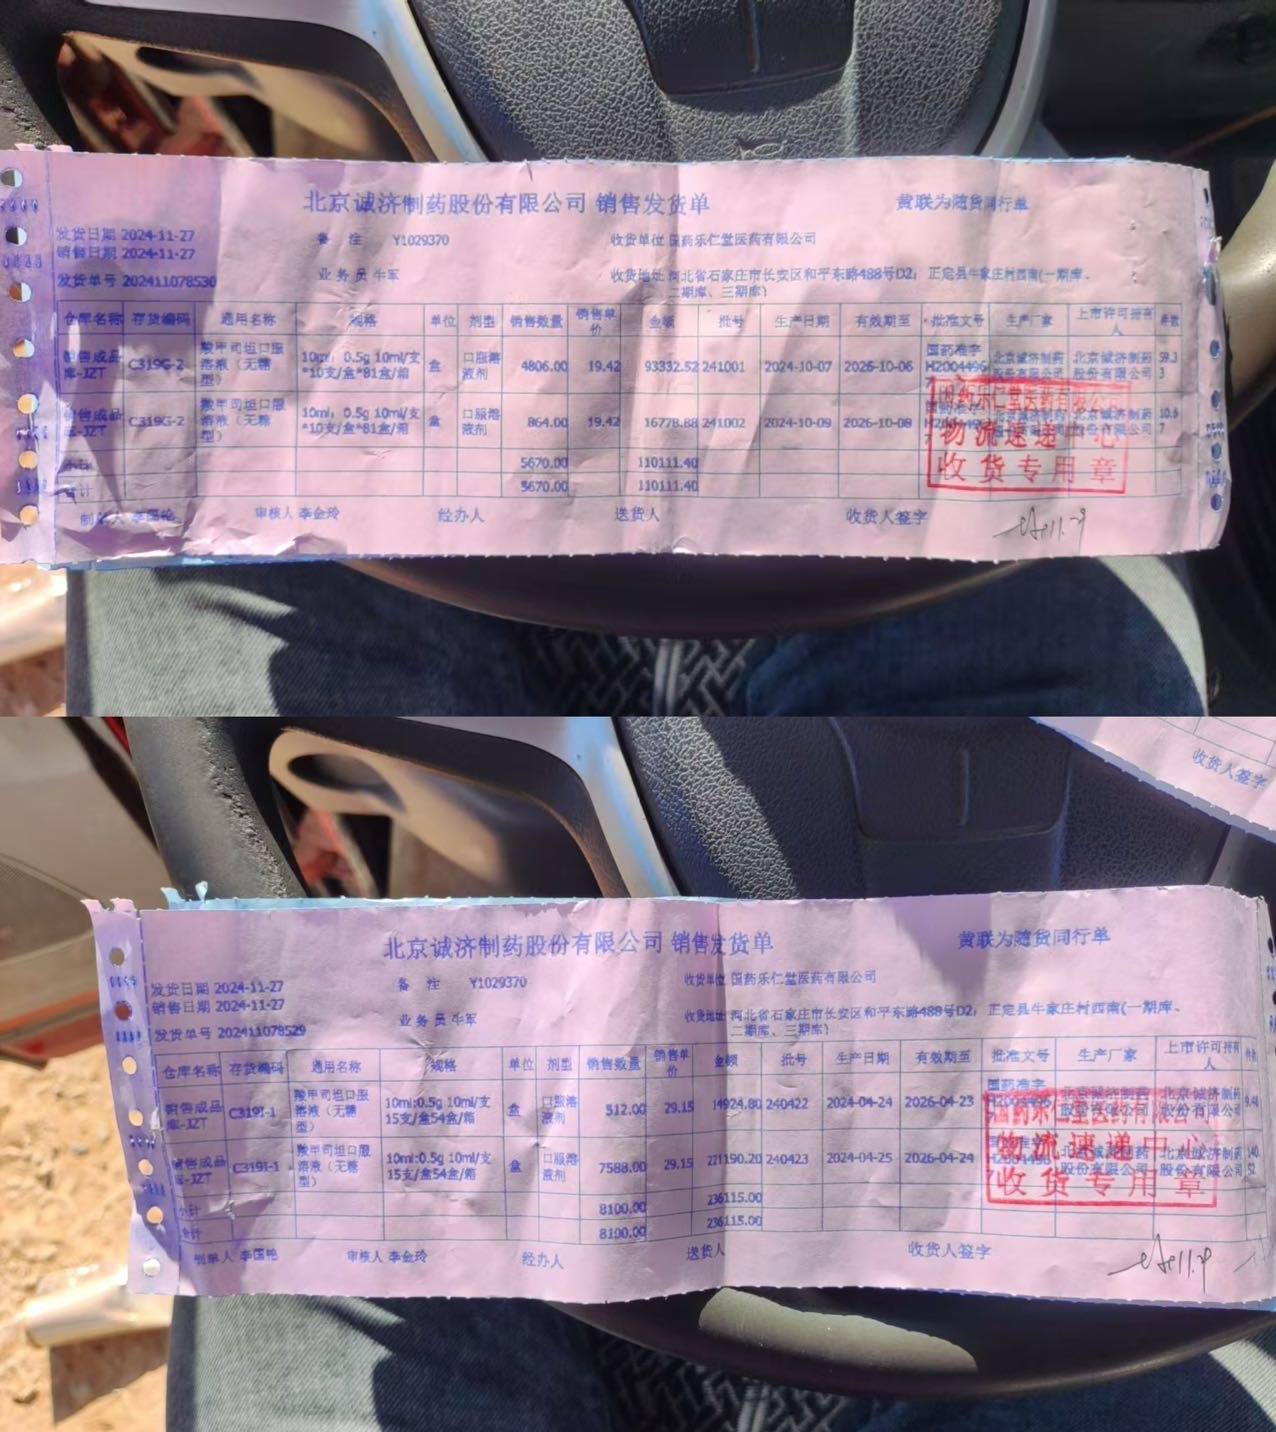 北京诚济制药股份有限公司 销售发货单
黄联为随货同行单
发货日期 2024-11-27
销售日期 2024-11-27
备 注 Y1029370
收货单位 国药乐仁堂医药有限公司
发货单号 202411078530
业务员 牛军
收货地址 河北省石家庄市长安区和平东路488号D2; 正定县牛家庄村西南(一期库、
二期库、三期库)
仓库名称 存货编码 通用名称 规格 单位 剂型 销售数量 销售单价 金额 批号 生产日期 有效期至 批准文号 生产厂家 上市许可持有人 件数
销售成品库-JZT C319G-2 羧甲司坦口服溶液（无糖型） 10ml: 0.5g 10ml/支*10支/盒*81盒/箱 盒 口服溶液剂 4806.00 19.42 93332.52 241001 2024-10-07 2026-10-06 国药准字H2004496 北京诚济制药股份有限公司 北京诚济制药股份有限公司 59.33
销售成品库-JZT C319G-2 羧甲司坦口服溶液（无糖型） 10ml: 0.5g 10ml/支*10支/盒*81盒/箱 盒 口服溶液剂 864.00 19.42 16778.88 241002 2024-10-09 2026-10-08 北京诚济制药股份有限公司 北京诚济制药股份有限公司 10.67
小计 5670.00 110111.40
合计 5670.00 110111.40
国药乐仁堂医药有限公司
物流速递中心
收货专用章
制单人 李国艳 审核人 李金玲 经办人 送货人 收货人签字
北京诚济制药股份有限公司 销售发货单
黄联为随货同行单
收货人签字
发货日期 2024-11-27
销售日期 2024-11-27
备 注 Y1029370
收货单位 国药乐仁堂医药有限公司
发货单号 202411078529
业务员 牛军
收货地址 河北省石家庄市长安区和平东路488号D2; 正定县牛家庄村西南(一期库、
二期库、三期库)
仓库名称 存货编码 通用名称 规格 单位 剂型 销售数量 销售单价 金额 批号 生产日期 有效期至 批准文号 生产厂家 上市许可持有人 件数
销售成品库-JZT C319I-1 羧甲司坦口服溶液（无糖型） 10ml:0.5g 10ml/支15支/盒54盒/箱 盒 口服溶液剂 512.00 29.15 14924.80 240422 2024-04-24 2026-04-23 国药准字 北京诚济制药股份有限公司 北京诚济制药股份有限公司 9.48
销售成品库-JZT C319I-1 羧甲司坦口服溶液（无糖型） 10ml:0.5g 10ml/支15支/盒54盒/箱 盒 口服溶液剂 7588.00 29.15 221190.20 240423 2024-04-25 2026-04-24 北京诚济制药股份有限公司 北京诚济制药股份有限公司 140.52
小计 8100.00 236115.00
合计 8100.00 236115.00
国药乐仁堂医药有限公司
物流速递中心
收货专用章
制单人 李国艳 审核人 李金玲 经办人 送货人 收货人签字